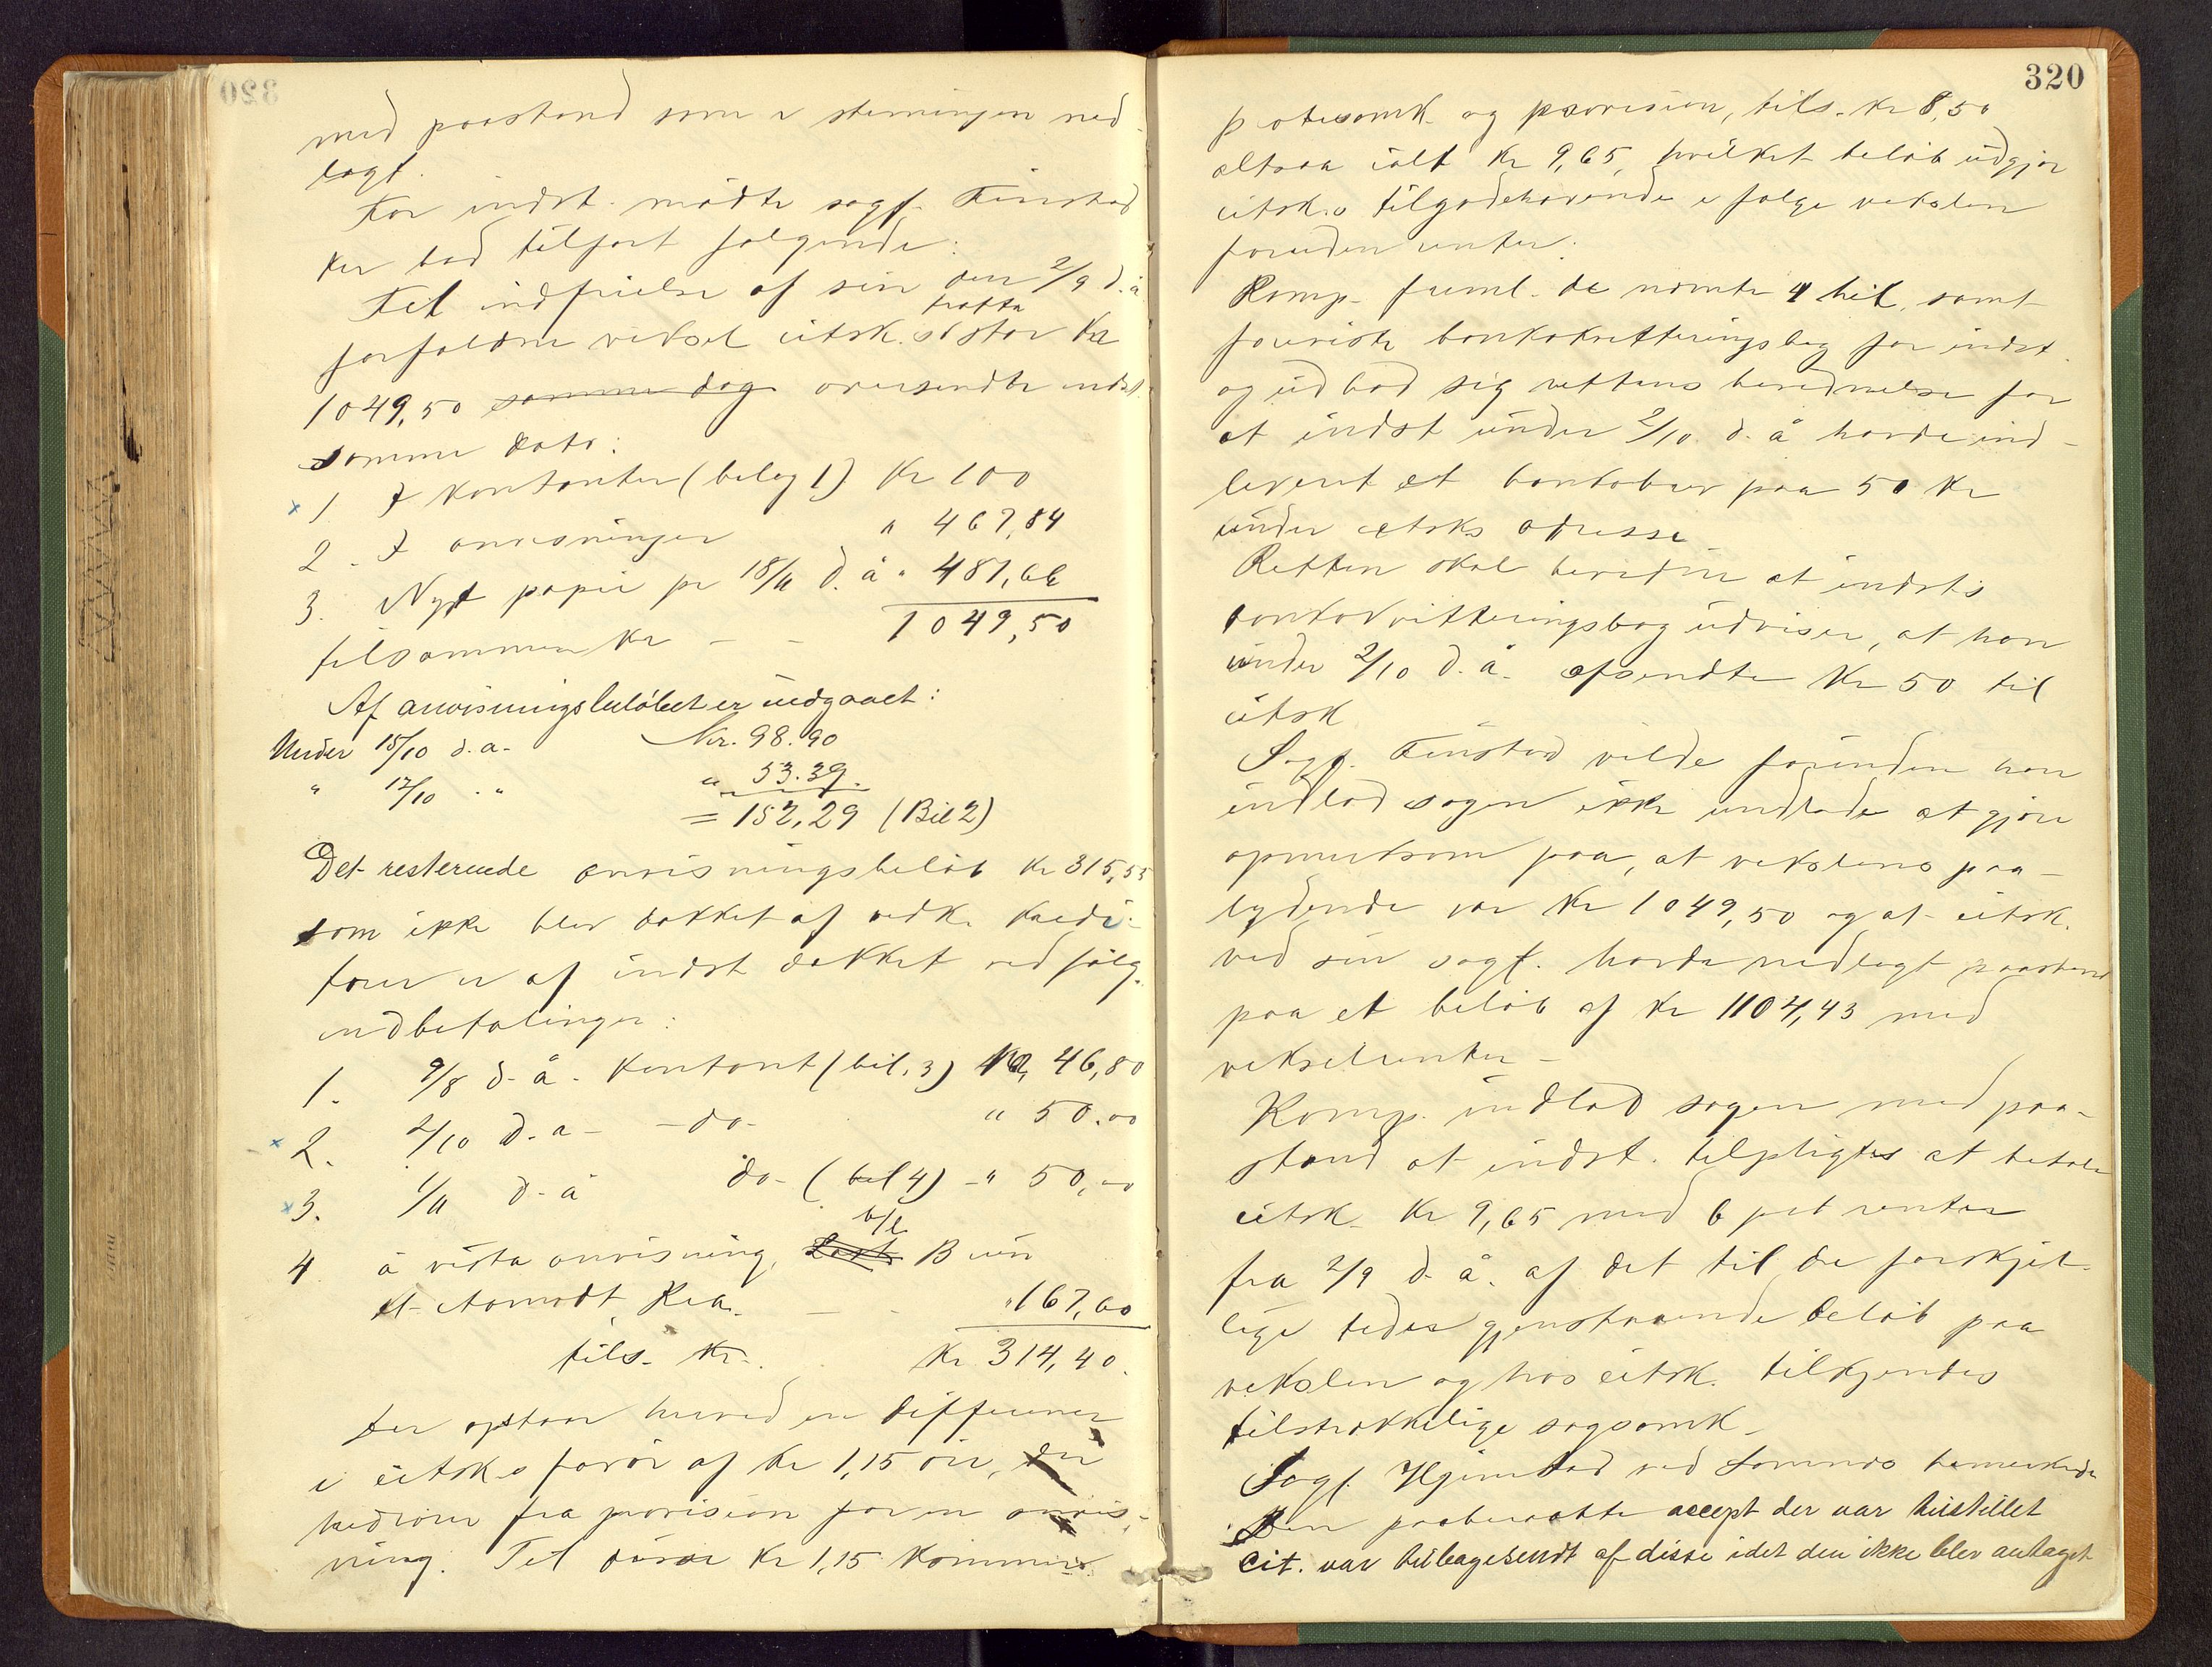 med paastand som i stevningen ned-
lagt.
For indst. mødte sagf. Finstad
der bad tilført følgende:
Til indfrielse af sin den 2/9 d. å
forfaldne veksel citsk. tratta stor Kr
1049,50 samme dag oversendte indst.
samme dato:
1. I kontanter (bilag 1) Kr 100
2. I anvisninger " 467,84
3. Nyt papir pr 18/11 d. å " 481,66
tilsammen Kr - - 1049,50
Af anvisningsbeløbet er indgaaet:
Under 15/10 d.a. Kr. 98.90
" 17/10 . " " 53.39.
= 152,29 (Bil 2)
Det resterende anvisningsbeløb Kr 315,55
som ikke blev dækket af vedk. kredi-
torer er af indst dækket ved følg.
indbetalinger:
1. 9/8 d. å. Kontant (bil. 3) Kr, 46,80
2. 2/10 d. a - - do - " 50.00
3. 1/11 d. å do - (bil 4) - " 50,00
4 a vista anvisning,
" 167,60
tils. Kr. Kr. 314,40.
Der opstaar herved en difference
i citsk.s favør af Kr 1,15 øre, der
hedrører fra provision for en anvis-
ning. Til disse Kr 1,15 kommer
320
protesomk. og provision, tils. Kr 8,50
altsaa ialt Kr 9,65, hvilket beløb udgjør
citsk.s tilgodehavende i følge vekslen
foruden renter.
Komp. freml. de nævnte 4 bil. samt
foreviste bankokvitteringsbog for indst.
og udbad sig rettens bevidnelse for
at indst under 2/10. d. å havde ind-
leveret et bankobrev paa 50 Kr
under citsks adresse
Retten skal bevidne at indsts
bankokvitteringsbog udviser, at han
under 2/10 d. å. afsendte Kr 50 til
citsk
Sagf. Finstad vilde forinden han
indlod sagen ikke undlade at gjøre
opmerksom paa, at vekslens paa-
lydende var Kr 1049,50 og at citsk.
ved sin sagf. havde nedlagt paastand
paa et beløb af Kr 1104,43 med
vekselrenter -
Komp. indlod sagen med paa-
stand at indst. tilpligtes at betale
citsk. Kr 9,65 med 6 pct renter
fra 2/9 d. å. af det til de forskjel-
lige tider gjenstaaende beløb paa
vekslen og hos citsk. tilkjendes
tilstrækkelige sagsomk -
Sagf. Hjimstad ved Somnes bemerkede
Den paaberaabte accept der var tilstillet
cit. var tilbagesendt af disse idet den ikke blev antaget